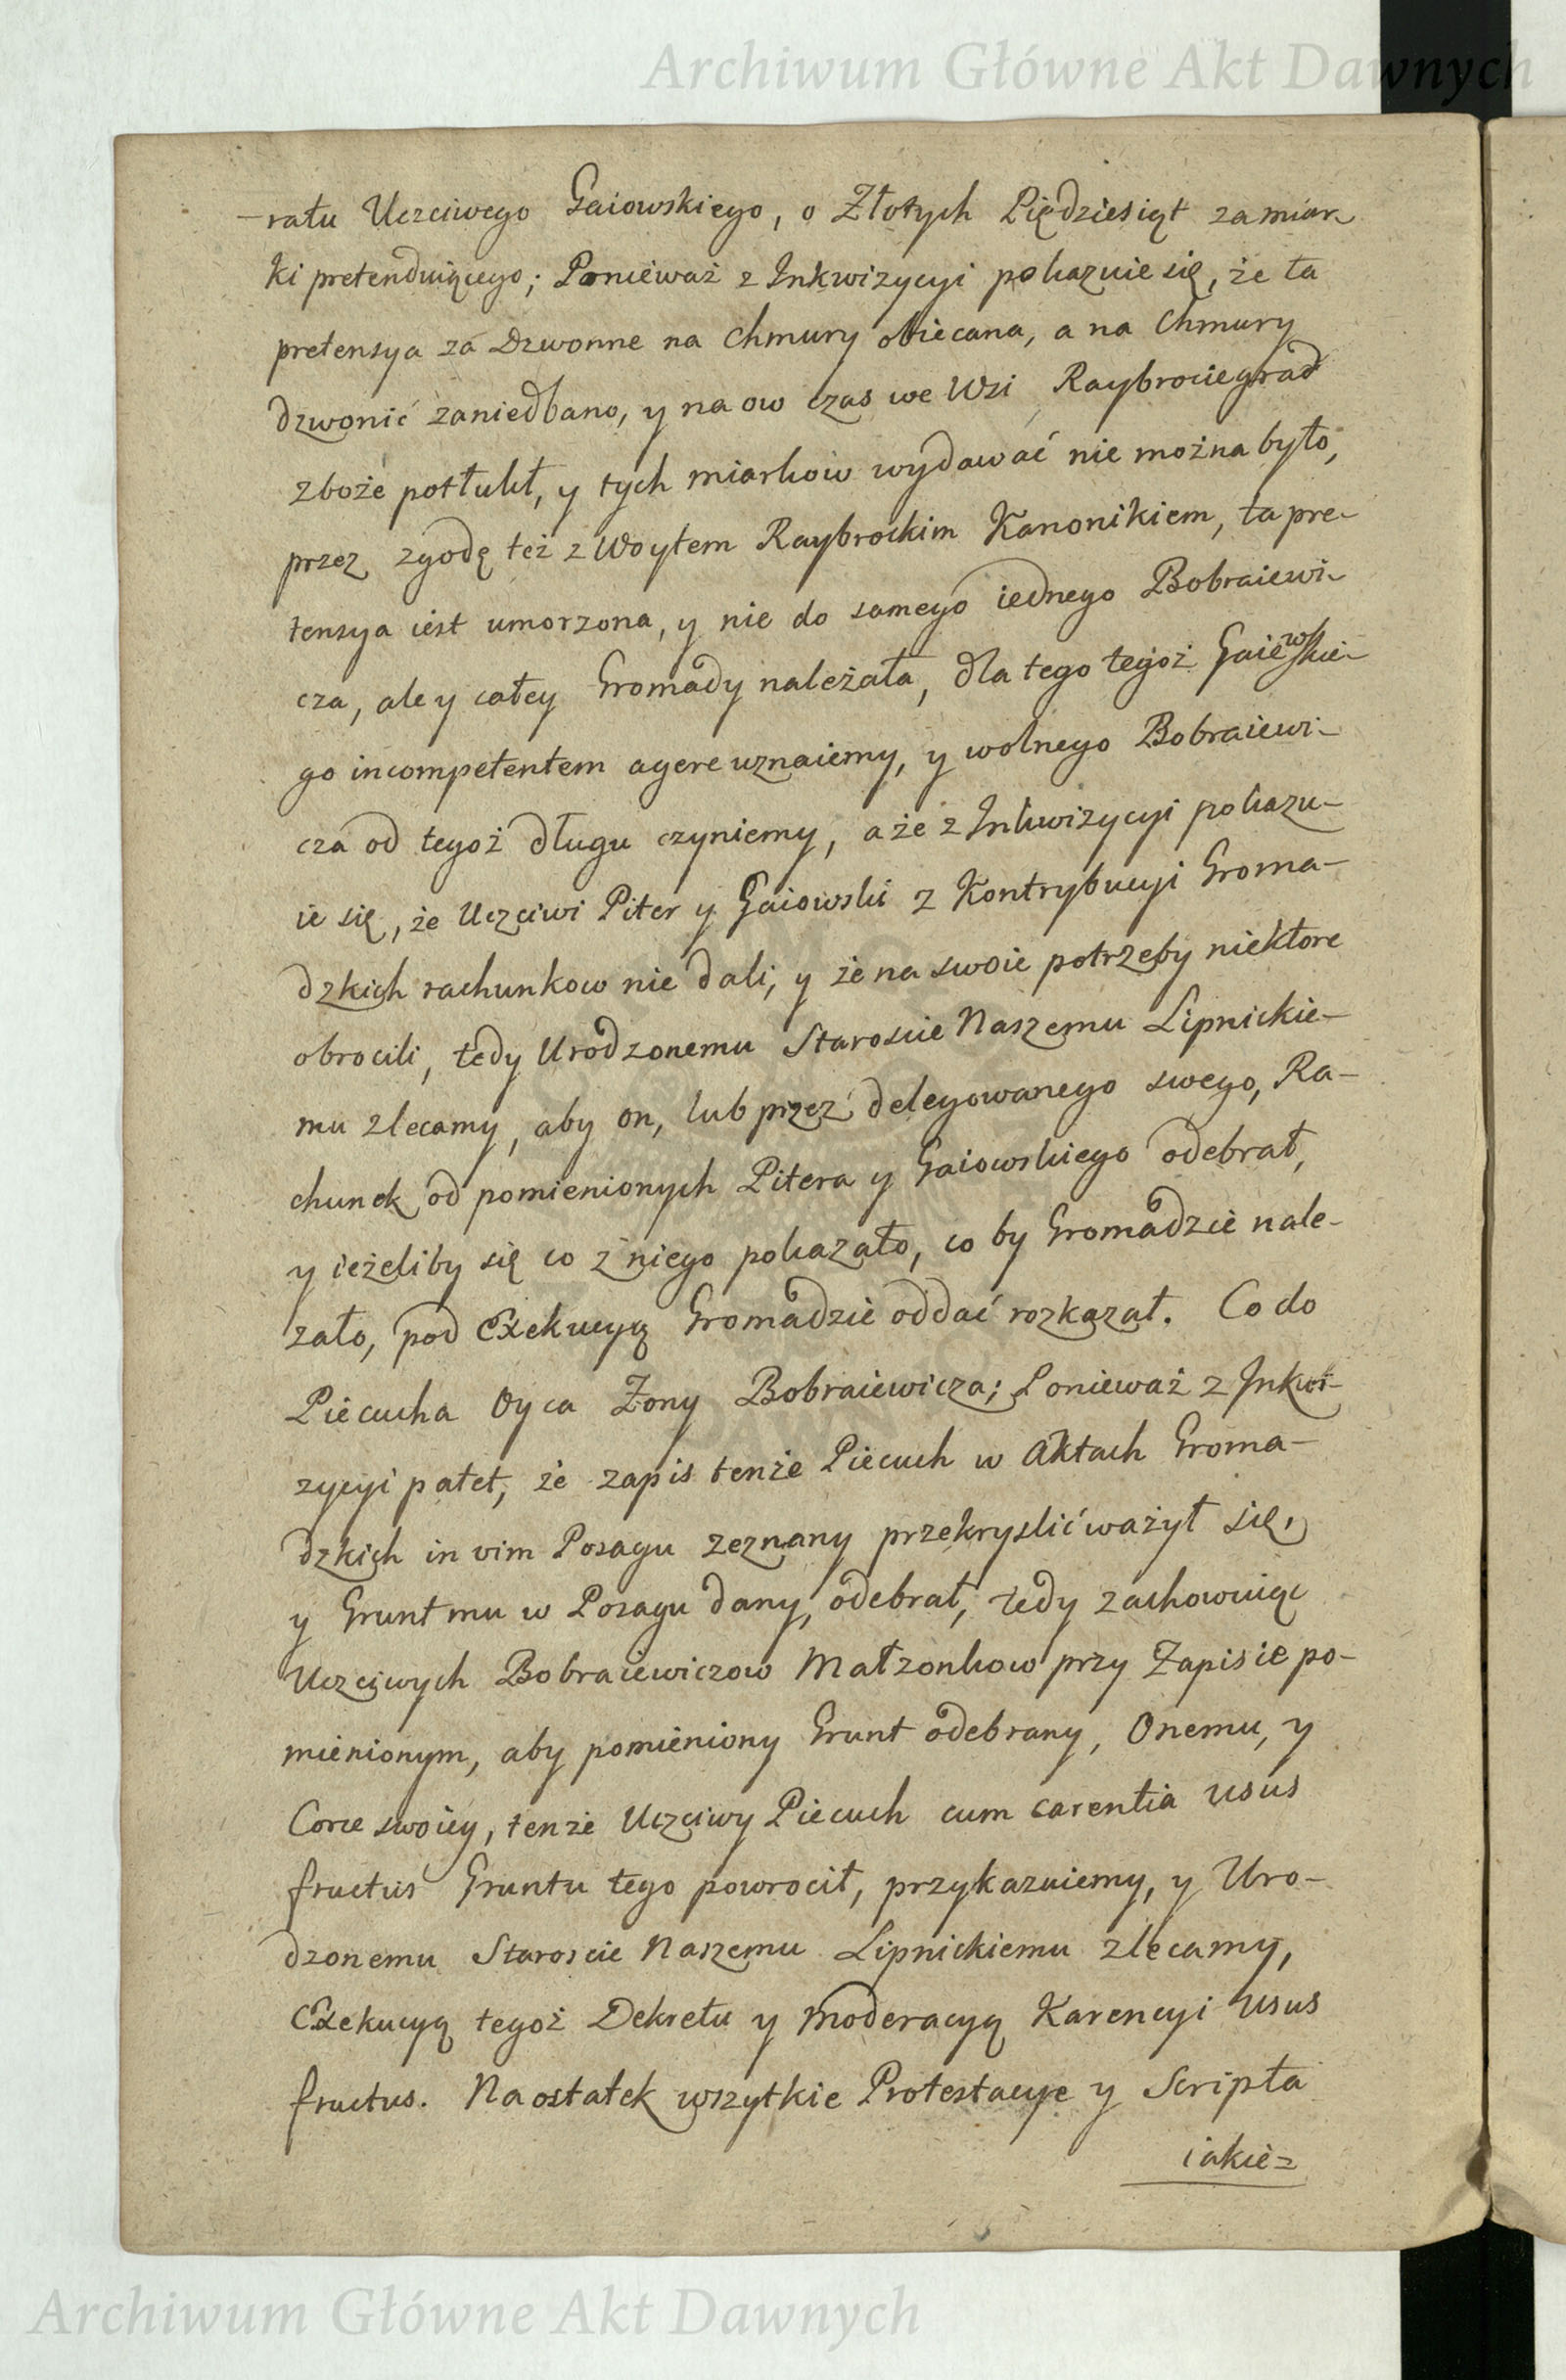 Archiwum Główne Akt Dawnych
–ratu Uczciwego Gaiowskiego, o Złotych Pięдziesiąt za miar-
ki pretenduiącego; Ponieważ z Inkwizycyi pokazuie się, że ta
pretensya za Dzwonne na Chmury obiecana, a na Chmury
dzwonić zaniedbano, y na ow czas we Wsi Raybrocie grad
zboże potłukł, y tych miarkow wydawać nie można było,
przez zgodę też z Woytem Raybrockim Kanonikiem, ta pre-
tensya iest umorzona, y nie do samego iednego Bobraiewi-
cza, ale y całey Gromady należała, dla tego tegoż Gaiewskie-
go incompetentem agere uznaiemy, y wolnego Bobraiewi-
cza od tegoż długu czyniemy, a że z Inkwizycyi pokazu-
ie się, że Uczciwi Piter y Gaiowski z Kontrybucyi Groma-
dzkich rachunkow nie dali, y że na swoie potrzeby niektore
obrocili, tedy Urodzonemu Staroscie Naszemu Lipnickie-
mu zlecamy, aby on, lub przez delegowanego swego, Ra-
chunek od pomienionych Pitera y Gaiowskiego odebrał,
y ieżeliby się co z niego pokazało, co by Gromadzie nale-
zało, pod Exekucyą Gromadzie oddać rozkazał. Co do
Piecucha Oyca Żony Bobraiewicza; Ponieważ z Inkwi-
zycyi patet, że zapis tenże Piecuch w Aktach Groma-
dzkich in vim Posagu zeznany przekryslić ważył się,
y Grunt mu w Posagu dany, odebrał, tedy zachowuiąc
Uczciwych Bobraiewiczow Małzonkow przy Zapisie po-
mienionym, aby pomieniony Grunt odebrany, Onemu, y
Corce swoiey, tenże Uczciwy Piecuch cum carentia usus
fructus Gruntu tego powrocił, przykazuiemy, y Uro-
dzonemu Staroscie Naszemu Lipnickiemu zlecamy,
Exekucyą tegoż Dekretu y Moderacyą Karencyi usus
fructus. Na ostatek wszytkie Protestacye y Scripta
iakie=
Archiwum Główne Akt Dawnych